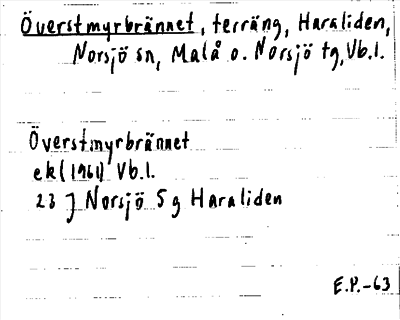 Överstmyrbrännet, terräng, Haraliden,
Norsjö sn, Malå o. Norsjö tg, Vb.l.
Överstmyrbrännet
ek (1961) Vb.l.
23 J Norsjö 5 g Haraliden
E.P.-63